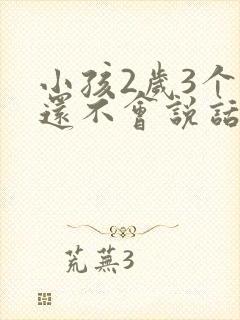 小孩2歲3个
還不會説話
荒蕪3